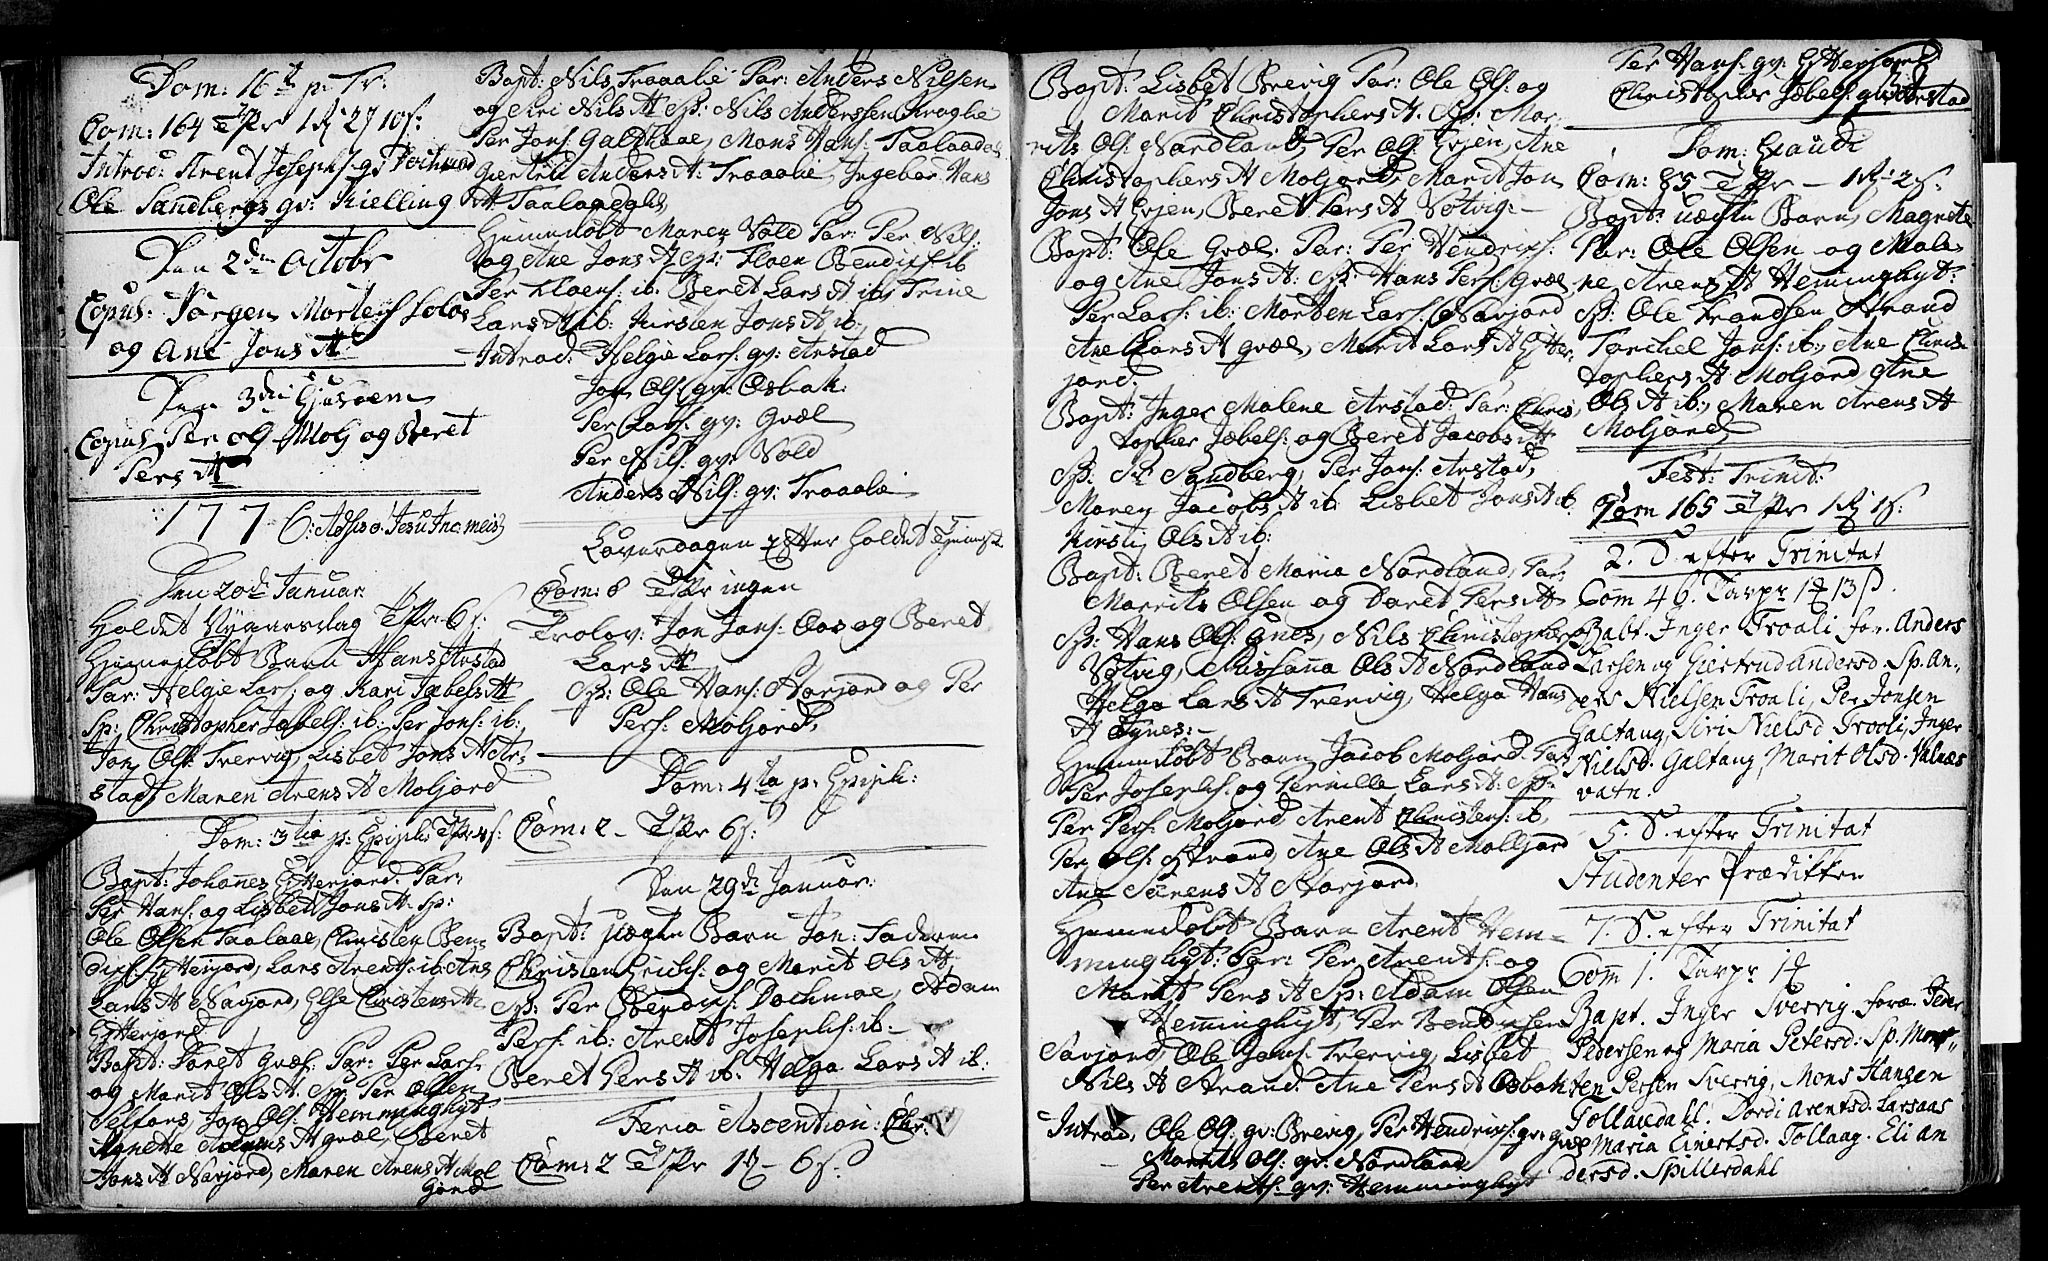 Dom: 16de p: Tr:
Com: 164 TPr 1 2 10 s:
Introd: Arent Josephs: gv:
Ole Sandbergs gv: Kielling
Den 2den Octobr
Copul: Jørgen Mortens
og Ane Jons D
Den 3die
Copul: Per Ols: og Beret
Pers D
1776: Adsis o Jesu
Den 20de Januar:
Holdet Nÿaarsdag TPr 6 s:
Hiemmedøbt Barn Hans Arstad
Par: Helgie Lars: og Kari Jæbels D
Sp: Christopher Jæbels: ib: Per Jons: ib:
Jon Ols: Trervig, Lisbet Jons D Ar-
stad, Maren Arens D Moljord
Dom: 3tia p: Epiph: TPr
Bapt: Johannes Etterjord. Par:
Per Hans: og Lisbet Jons D. Sp:
Ole Olsen Taalaae, Christen Ben-
dixs: Etterjord, Lars Arents: ib: Ane
Lars D Navjord, Else Christens D
Etterjord
Bapt: Doret Qvæl: Par: Per Lars:
og Marit Ols D. Sp: Per Olsen
Selfors, Jon Ols: Hemminghÿt
Agnette Adams D Qvæl, Beret
Jons D Navjord, Maren Arens D Mol
jord
Bapt: Nils Traaalie Par: Anders Nilsen
og Siri Nils D Sp: Nils Anderssen Traalie
Per Jons: Galthaae, Mons Hans: Taalaadal
Giertrud Anders D: Traaalie, Ingebor Hans
D Taalaadahl
Hiemmedøbt Maren Vold Par: Per Nils:
og Ane Jons D Sp: Floen Bendixs: ib
Per Floens: ib: Beret Lars D ib, Trine
Lars D ib: Kirsten Jons D ib:
Introd: Helgie Lars: gv: Arstad
Jon Ols: gv: Osbak:
Per Lars: gv: Qvæl
Per Nils: gv: Vold
Anders Nils: gv: Traaalie
Løverdagen Efter holdet Tieniste
Com: 8 TPr ingen
Trolov: Jon Jons: Oos og Beret
Lars D
Sp: Ole Hans: Storjord og Per
Pers: Moljord,
Dom: 4ta p: Epiph:
Com: 2 – TPr 6 s:
Den 29de Januar:
Bapt: uægte Barn Jon: Faderen
Christen Erichs: og Marit Ols D,
Sp: Per Bendixs: Dochmoe, Adam
Pers: ib: Arent Josephs: ib:
Beret Pers D ib: Helga Lars D ib:
Feria Ascention: Chr:
Com: 2 TPr 1 – 6 s:
Bapt: Lisbet Brevig Par: Ole Ols: og
Marit Christophers D. Sp: Mor-
rits Ols: Nordland, Per Ols: Evjen, Ane
Christophers D Moljord, Marit Jon
Jons D Evjen, Beret Pers D Søtvig:
Bapt: Ole Qvæl. Par: Per Hendrixs:
og Ane Jons D: Sp: Hans Pers: Qvæl,
Per Lars: ib: Morten Lars: Navjord
Ane Lars D Qvæl, Marit Lars D Etter
jord.
Bapt: Inger Malene Arstad: Par: Chris
topher Jæbels: og Beret Jacobs D
Sp: Sr Sandberg, Per Jons: Arstad,
Maren Jacobs D ib: Lisbet Jons D ib.
Kirsti Ols D ib:
Bapt: Beret Maria Nordland, Par:
Morrits Olsen og Doret Pers D
Sp: Hans Ols: Ynes, Nils Christophers
Søtvig, Ols D Nordland
Helga Lars D Trervig, Helga Hans
D Ognes:
Hiemmedøbt Barn Jacob Moljord. Par:
Per Josephs: og Pernille Lars D: Sp:
Per Pers: Moljord, Arent Christens: ib,
Per Ols: Strand, Ane Ols D Molljord
Ane Sørens D Storjord
Hiemmedøbt Barn Arent Hem-
minghÿt: Par: Per Arents: og
Marit Pers D Sp: Adam Olsen
Hemminghÿt, Per Bendixsen
Navjord, Ole Jons: Trervig, Lisbet
Nils D Strand: Ane Pers D Osbak
Introd: Ole Ols: gv: Brevig, Per Hendrixs: gv: Qvæl
Morrits Ols: gv: Nordland
Per Arents: gv: Hemminghÿt
Per Hans: gv: Etterjord
Christopher Jæbels: gv: Arstad
Dom: Exaudi
Com: 85 TPr – 1 2 s:
Bapt: uægte Barn, Magrete
Par: Ole Olsen og Male
ne Arens D Hemminghÿt:
Sp: Ole Frandsen Strand
Torchel Jons: ib:, Ane Chris
tophers D Moljord Ane
Ols D ib:, Maren Arens D
Moljord
Fest: Trinit:
Com 165 TPr 1 1 s:
2. S. efter Trinitat
Com 46. Tavpr 1 13 s.
Bapt. Inger Troali for. Anders
Larsen og Giertrud Andersd. Sp. An-
ders Nielsen Troali, Per Jonsen
Galtaug, Siri Nielsd Troali, Inger
Nielsd. Galtaug, Marit Olsd. Valnes
vatn.
5. S. efter Trinitat
Studenter Prædikken
7. S. efter Trinitat
Com 1. Tavpr 1
Bapt. Inger Sverrig. foræ. Peder
Pedersen og Maria Petersd: Sp. Mor-
ten Persen Sverrig, Mons Hansen
Tollaudahl. Dordi Arentsd. Larsaas
Maria Einertsd. Tollaag. Eli An
dersd. Spillerdahl